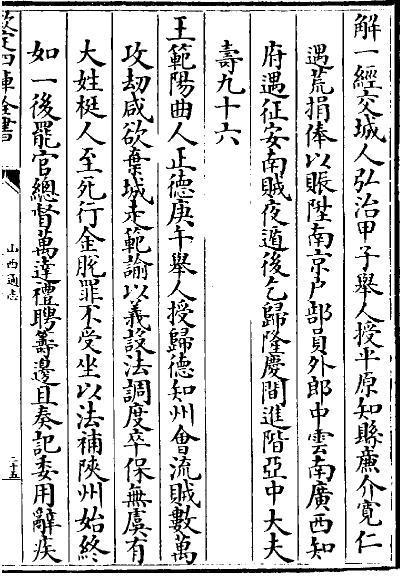 解一經交城人弘治甲子舉人授平原知縣廉介寛仁
遇荒捐俸以賑陞南京户部員外郎中雲南廣西知
府遇征安南賊夜遁後乞歸隆慶間進階亞中大夫
壽九十六
王範陽曲人正德庚午舉人授歸德知州會流賊數萬
攻刼咸欲棄城走範諭以義設法調度卒保無虞有
大姓梃人至死行金脫罪不受坐以法補陜州始終
如一後罷官總督萬達禮聘籌邊且奏記委用辭疾
欽定四庫全書
山西通志
二十五